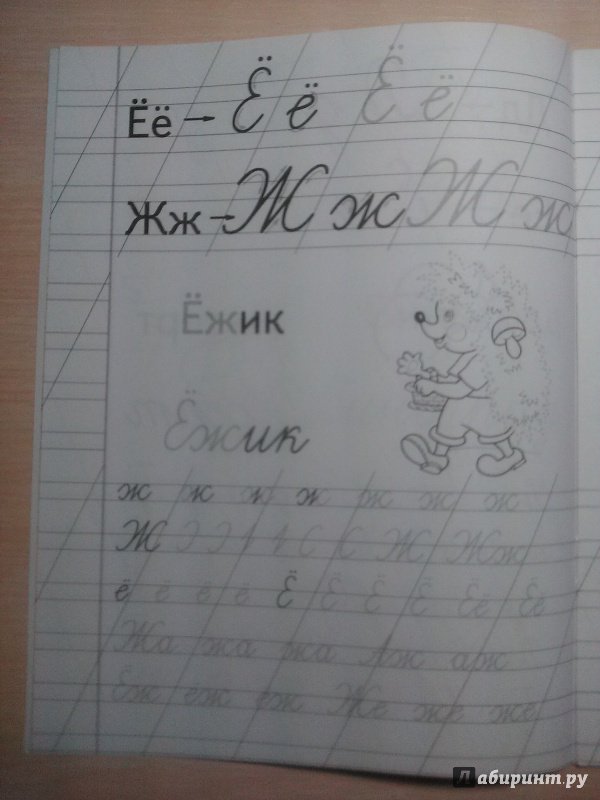 Ёё → Ё ё Ё ё
Жж → Ж ж Ж ж
Ёжик
Ёжик
ж ж ж ж ж ж ж
Ж Ж Жж
ё ё ё ё Ё Ё Ё Ё Ёё Ёё
Жа жа жа Аж аж
Ёж еж еж Же же же
Лабиринт.ру